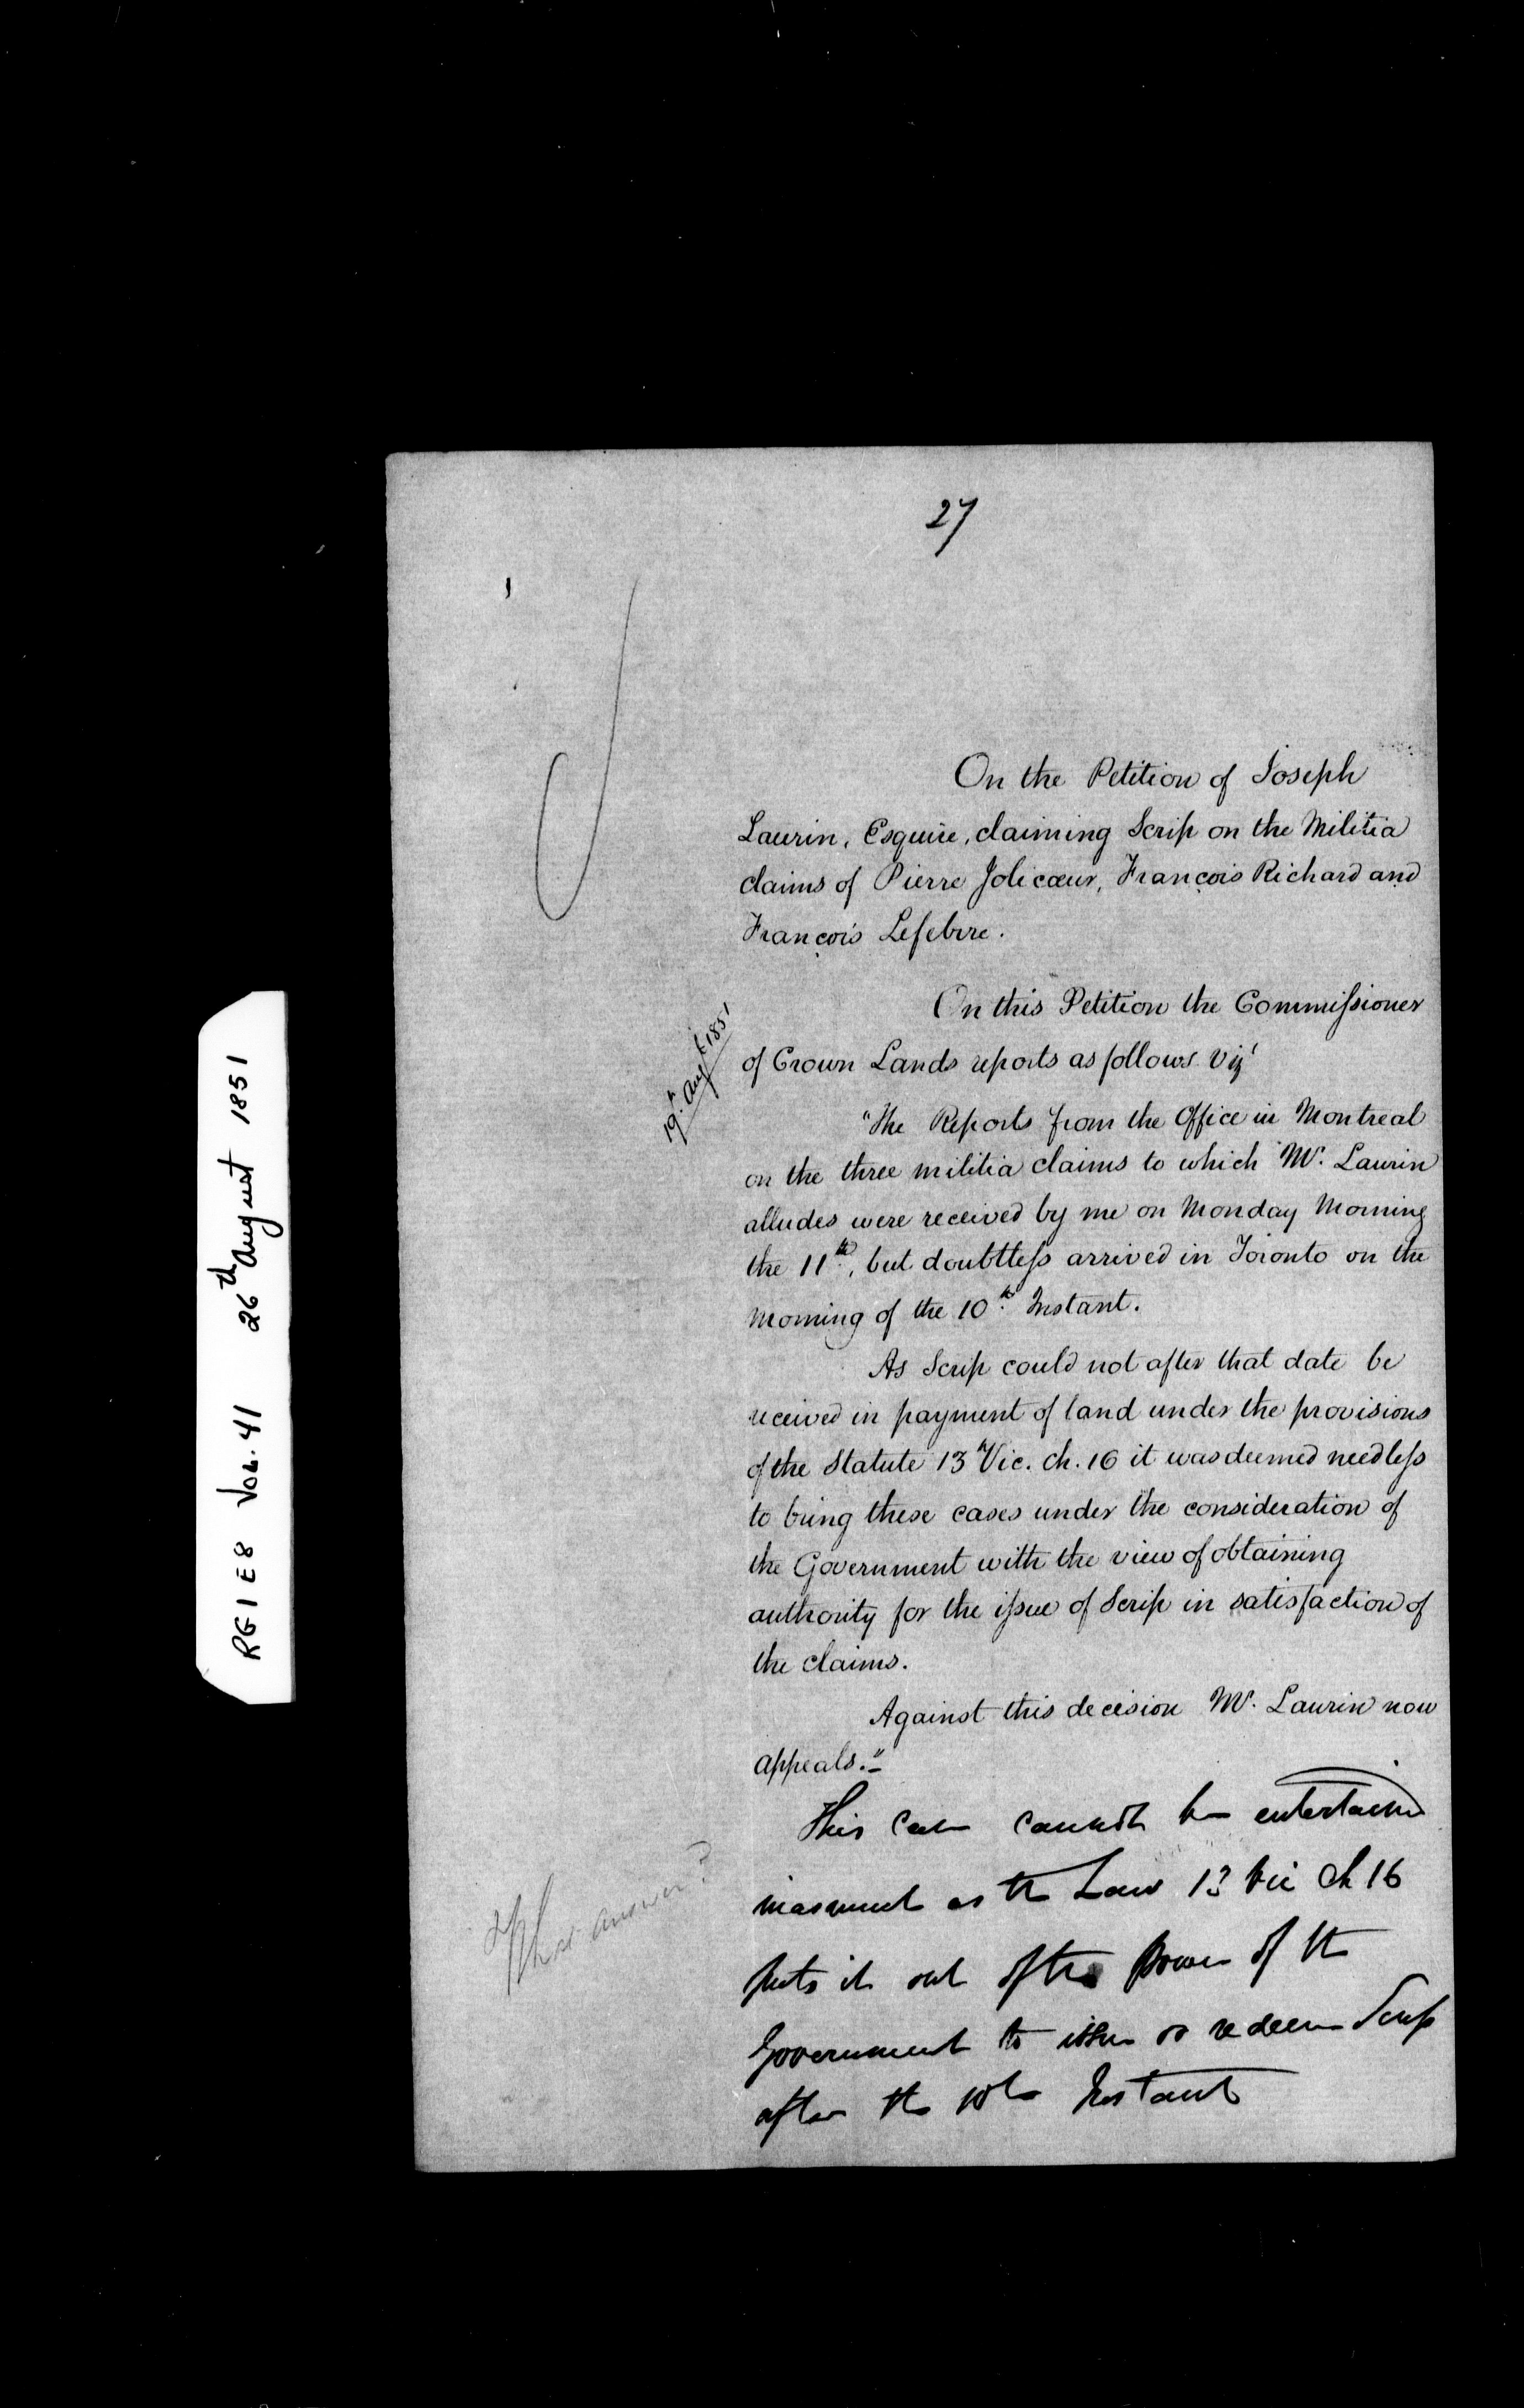 27
On the Petition of Joseph
Laurin, Esquire, claiming Scrip on the Militia
claims of Pierre Jolicœur, François Richard and
François Lefebvre.
On this Petition the Commissioner
of Crown Lands reports as follows Vizt
19th Augt 1851
"The Reports from the Office in Montreal
on the three militia claims to which Mr. Laurin
alludes were received by me on Monday Morning
the 11th, but doubtless arrived in Toronto on the
morning of the 10th Instant.
As Scrip could not after that date be
received in payment of land under the provisions
of the Statute 13th Vic. ch. 16 it was deemed needless
to bring these cases under the consideration of
the Government with the view of obtaining
authority for the issue of Scrip in satisfaction of
the claims.
Against this decision Mr. Laurin now
appeals."
This case cannot be entertained
inasmuch as the Law 13 Vic Ch 16
puts it out of the power of the
Government to issue or redeem Scrip
after the 10th Instant
What answer?
RG 1 E 8 Vol. 41 26th August 1851